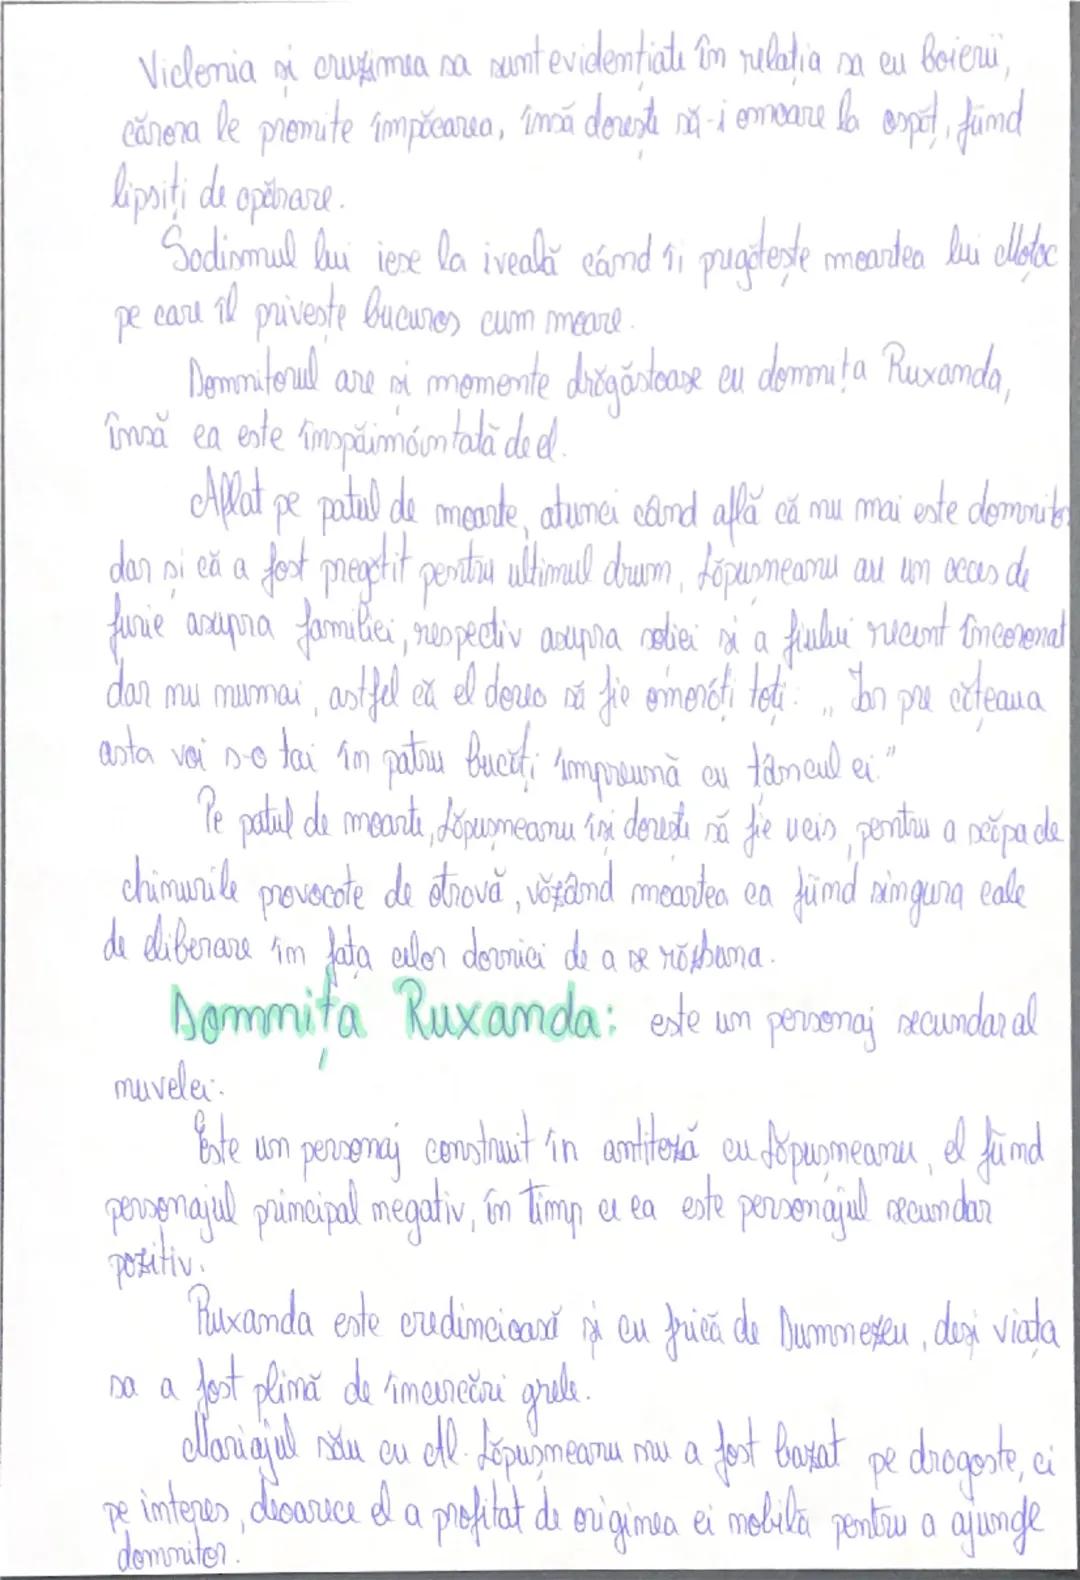 Viclenia și cruzimea sa sunt evidențiate în relația sa cu Boierii,
cărora le promite împăcarea, însă dorește să-i omoare la ospăț, fiind
lipsiți de apărare.
Sadismul lui iese la iveală când îi pregătește moartea lui Moțoc
pe care îl privește bucuros cum moare.
Domnitorul are și momente drăgăstoase cu domnița Ruxanda,
însă ea este înspăimântată de el.
Aflat pe patul de moarte, atunci când află că nu mai este domnitor
dar și că a fost pregătit pentru ultimul drum, Lăpușneanu are un acces de
furie asupra familiei, respectiv asupra soției și a fiului recent încoronat
dar nu numai, astfel că el dorea să fie omorâți toți: „Iar pre cățeaua
asta voi s-o tai în patru bucăți împreună cu țâncul ei."
Pe patul de moarte, Lăpușneanu își dorește să fie ucis, pentru a scăpa de
chinurile provocate de otravă, văzând moartea ca fiind singura cale
de eliberare în fața celor dornici de a se răzbuna.
Domnița Ruxanda: este un personaj secundar al
nuvelei.
Este un personaj construit în antiteză cu Lăpușneanu, el fiind
personajul principal negativ, în timp ce ea este personajul secundar
pozitiv.
Ruxanda este credincioasă și cu frică de Dumnezeu, deși viața
sa a fost plină de încercări grele.
Mariajul său cu Al. Lăpușneanu nu a fost bazat pe dragoste, ci
pe interes, deoarece el a profitat de originea ei nobilă pentru a ajunge
domnitor.